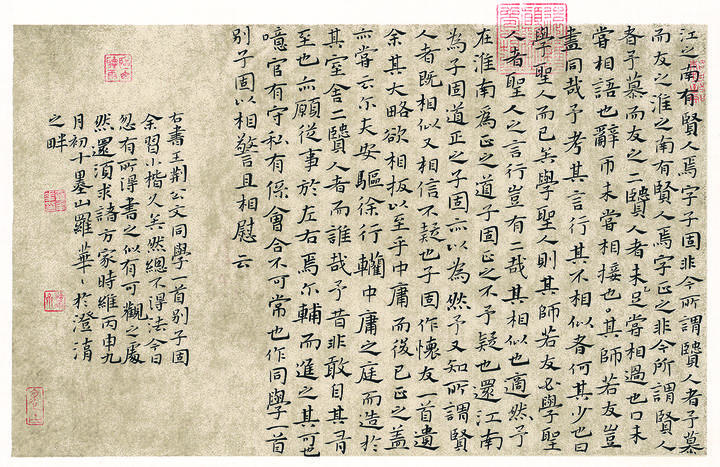 江之南有賢人焉字子固非今所謂賢人者予慕
而友之淮之南有賢人焉字正之非今所謂賢人
者予慕而友之二賢人者未足嘗相過也口未
嘗相語也辭币未嘗相接也其師若友豈
盡同哉予考其言行其不相似者何其少也曰
學聖人而已矣學聖人則其師若友必學聖
人者聖人之言行豈有二哉其相似也適然予
在淮南爲正之道子固正之不予疑也還江南
為子固道正之子固亦以為然予又知所謂賢
人者既相似又相信不疑也子固作懷友一首遺
余其大略欲相扳以至乎中庸而後已正之蓋
亦嘗云尔夫安驅徐行轥中庸之庭而造於
其室舍二賢人者而誰哉予昔非敢自其有
至也亦願從事於左右焉尔輔而進之其可也
噫官有守私有保會合不可常也作同學一首
別子固以相警且相慰云
右書王荆公文同學一首別子固
余習小楷久矣然總不得法今日
忽有所得書之似有可觀之處
然還須求諸方家時維丙申九
月初十墨山羅華〻於澄清
之畔